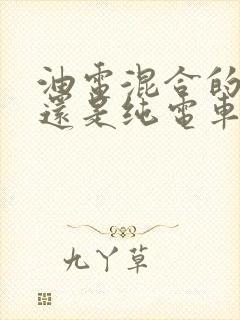 油電混合的
還是纯電車
九丫草